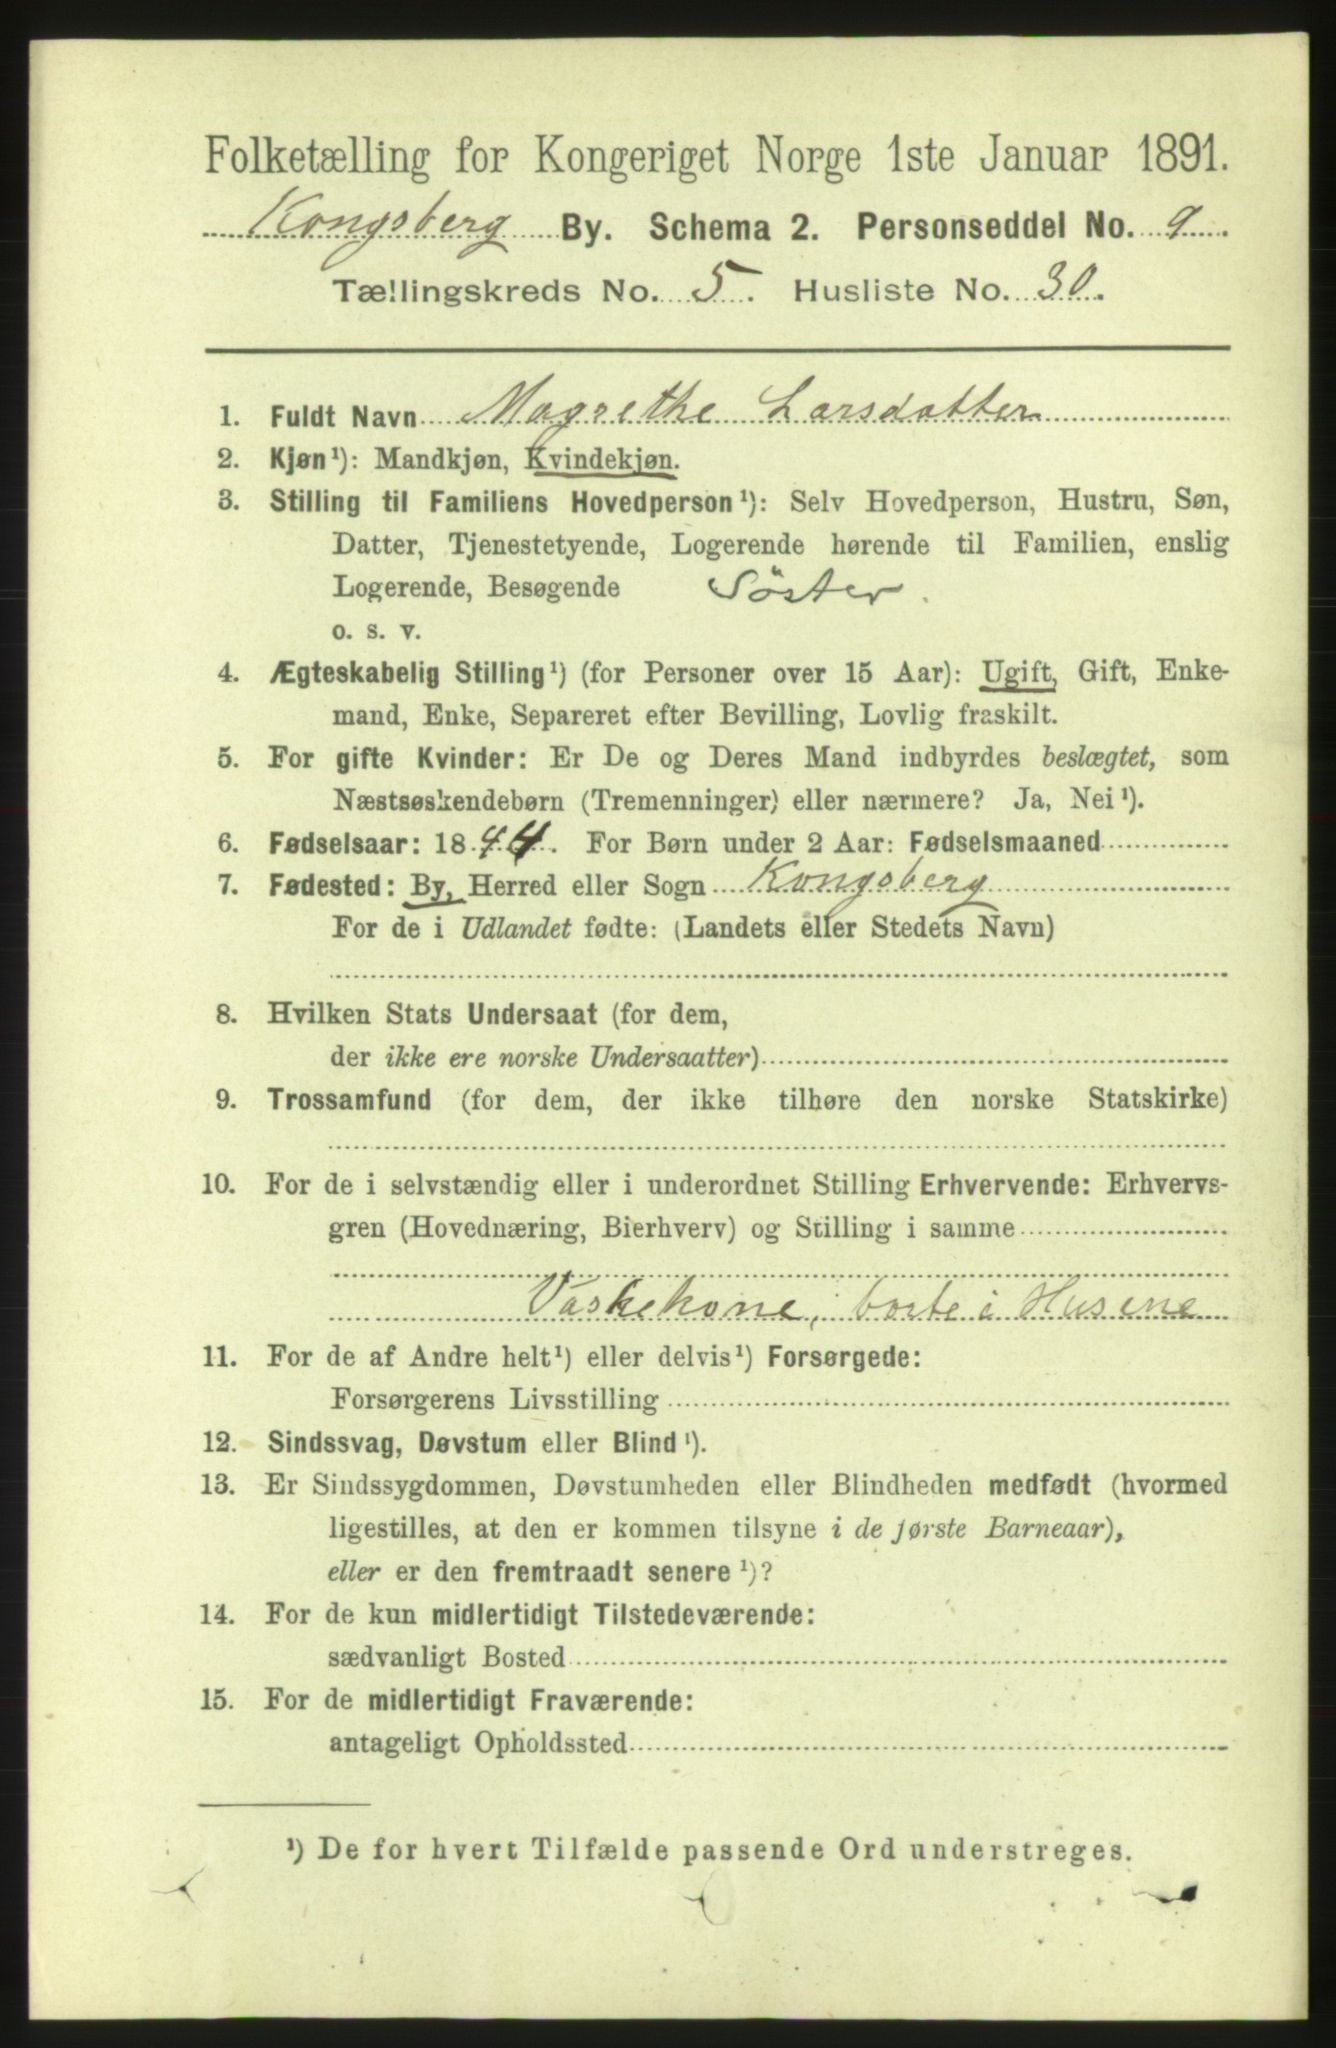 Folketælling for Kongeriget Norge 1ste Januar 1891.
Kongsberg By. Schema 2. Personseddel No. 9.
Tællingskreds No. 5. Husliste No. 30.
1. Fuldt Navn Magrethe Larsdatter
2. Kjøn¹): Mandkjøn, Kvindekjøn.
3. Stilling til Familiens Hovedperson¹): Selv Hovedperson, Hustru, Søn,
Datter, Tjenestetyende, Logerende hørende til Familien, enslig
Logerende, Besøgende Söster.
o. s. v.
4. Ægteskabelig Stilling¹) (for Personer over 15 Aar): Ugift, Gift, Enke-
mand, Enke, Separeret efter Bevilling, Lovlig fraskilt.
5. For gifte Kvinder: Er De og Deres Mand indbyrdes beslægtet, som
Næstsøskendebørn (Tremenninger) eller nærmere? Ja, Nei¹).
6. Fødselsaar: 1844. For Børn under 2 Aar: Fødselsmaaned
7. Fødested: By, Herred eller Sogn Kongsberg
For de i Udlandet fødte: (Landets eller Stedets Navn)
8. Hvilken Stats Undersaat (for dem,
der ikke ere norske Undersaatter)
9. Trossamfund (for dem, der ikke tilhøre den norske Statskirke)
10. For de i selvstændig eller i underordnet Stilling Erhvervende: Erhvervs-
gren (Hovednæring, Bierhverv) og Stilling i samme
Vaskekone, borte i Husene
11. For de af Andre helt¹) eller delvis¹) Forsørgede:
Forsørgerens Livsstilling
12. Sindssvag, Døvstum eller Blind¹).
13. Er Sindssygdommen, Døvstumheden eller Blindheden medfødt (hvormed
ligestilles, at den er kommen tilsyne i de første Barneaar),
eller er den fremtraadt senere¹)?
14. For de kun midlertidigt Tilstedeværende:
sædvanligt Bosted
15. For de midlertidigt Fraværende:
antageligt Opholdssted
¹) De for hvert Tilfælde passende Ord understreges.